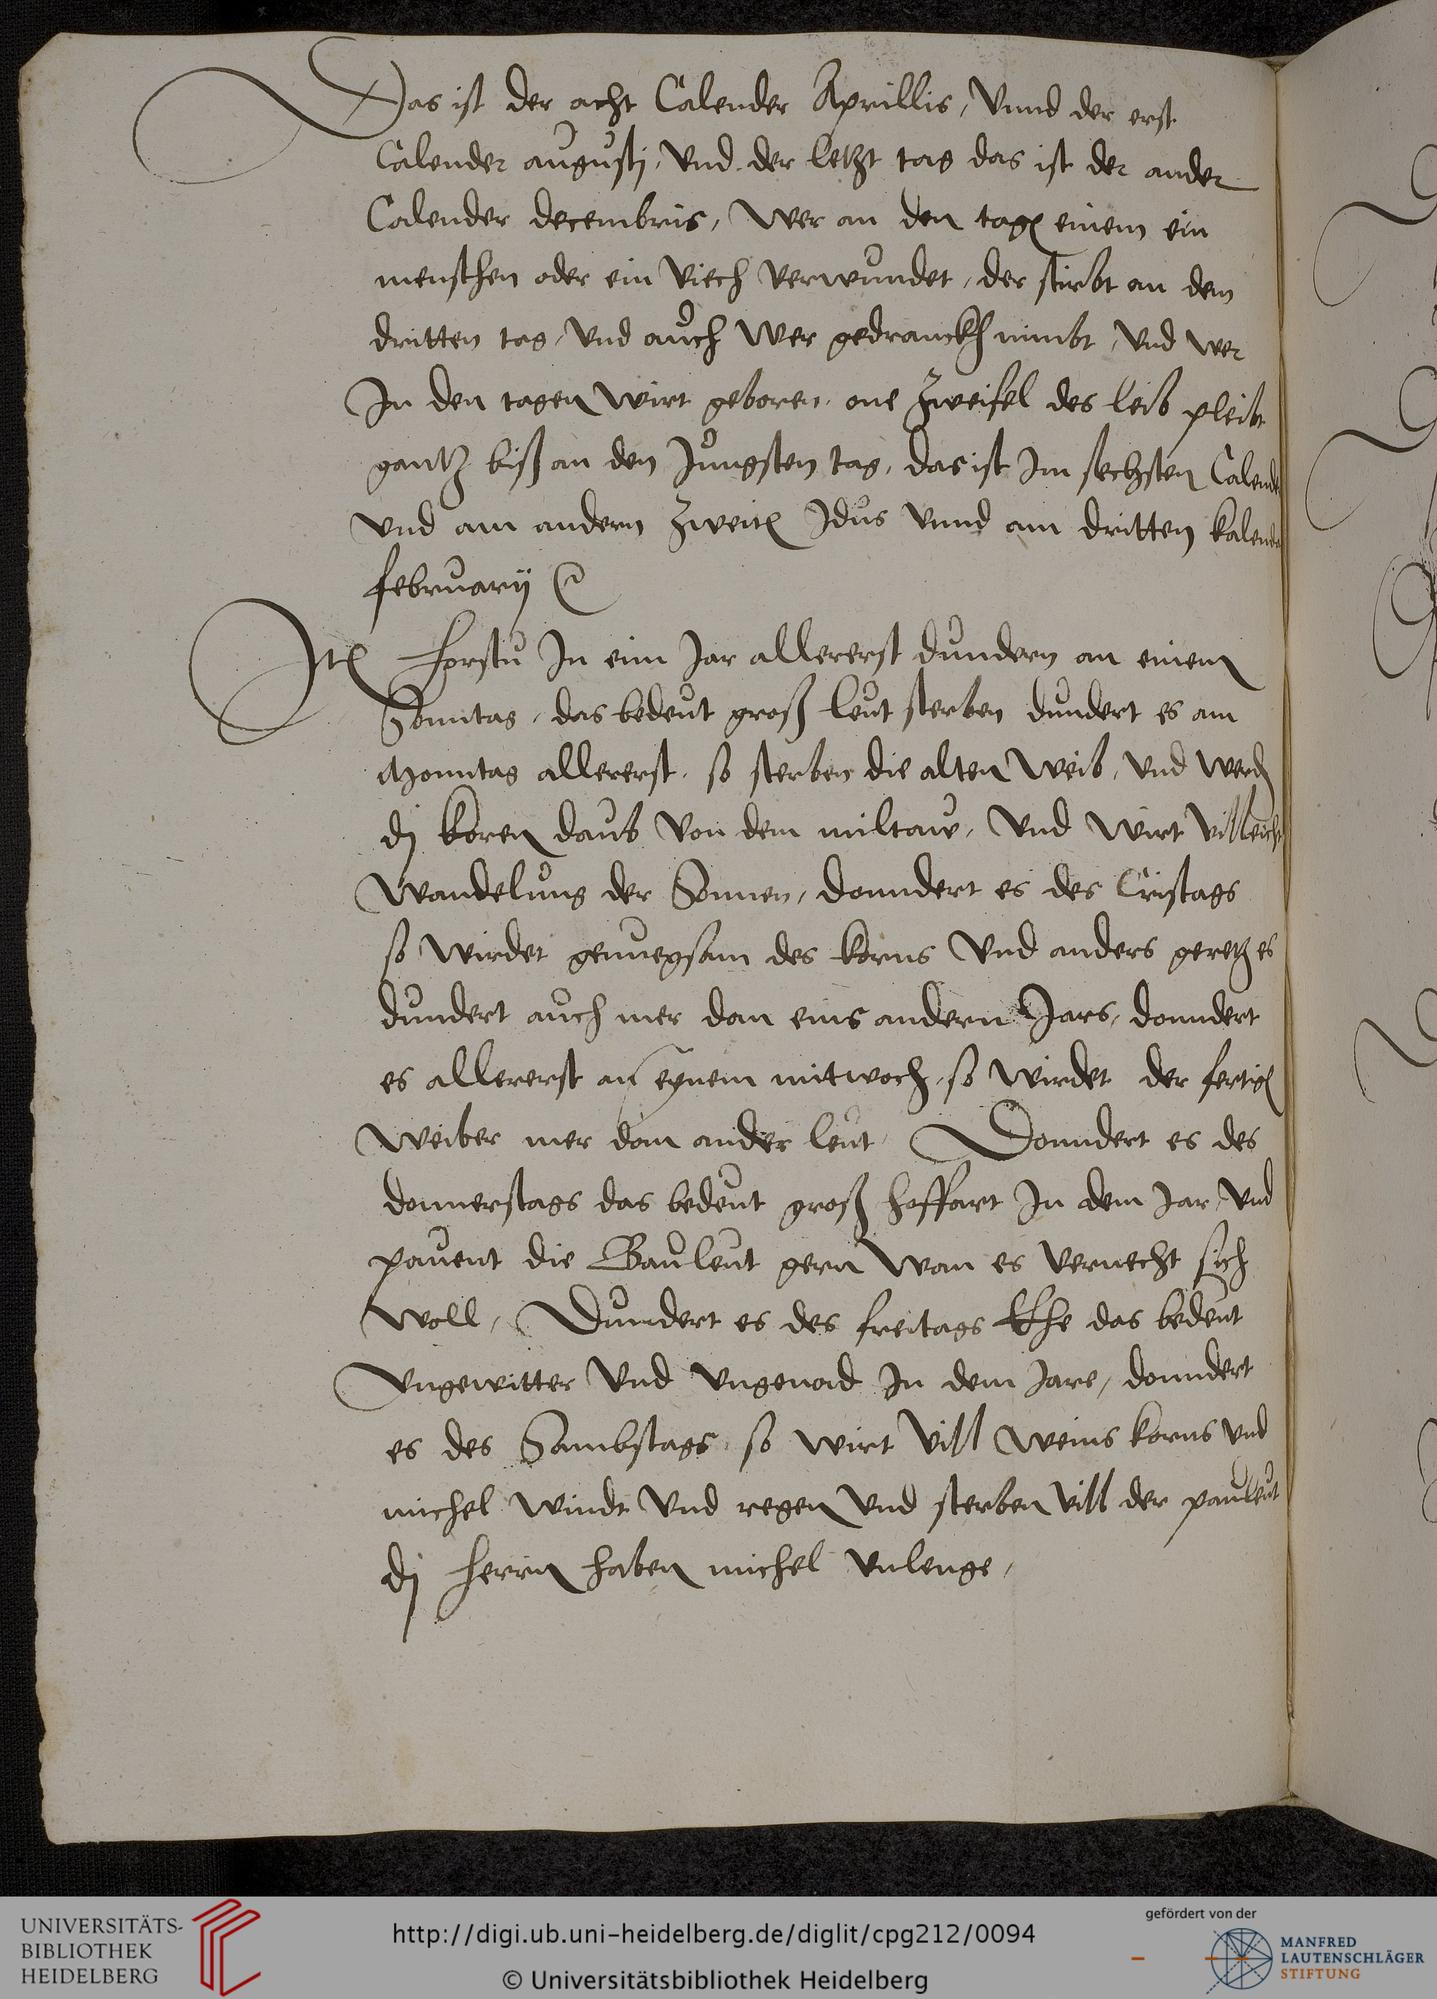 Das ist der acht Calender Aprillis, Vnnd der erst
Calender augustj, Vnd der letzt tag das ist der ander
Calender decembris, Wer an den tagen einem ein
menschen oder ein Viech verwundet, der stirbt an dem
dritten tag, Vnd auch Wer gedranckh nimbt, Vnd wer
In den tagen Wirt geboren, one Zweifel des leib pleibt
gantz biß an den Jungsten tag, das ist Im sechsten Calender
vnd am andern Zweiten Idus Vnnd am dritten kalender
februarij
Item horstu In eim Jar allererst dundern an einem
Sonntag, das bedeut groß leut sterben dundert es am
Monntag allererst, so sterben die alten Weib, Vnd Werden
dj koren daub Von dem miltaw, Vnd Wirt Villeicht
Wandelung der Sonnen, donndert es des Eristags
so Wirdet genuegsam des korns Vnd anders geretz es
dundert auch mer dan eins andern Jars, donndert
es allererst an eynem mitwoch, so Wirdet der fertigen
Weiber mer dan ander leut, Donndert es des
donnerstags das bedeut groß hoffart In dem Jar, Vnd
pauent die Bauleut gern Wan es Vernecht sich
Woll, Dundert es des freitags das bedeut
Vngewitter Vnd Vngenad In dem Jare, donndert
es des Sambstags, so Wirt Vill Weins korns Vnd
michel Windt Vnd regen Vnd sterben Vill der pauleut
dj herrn haben michel Vrlenge,
UNIVERSITÄTS-
BIBLIOTHEK
HEIDELBERG
http://digi.ub.uni-heidelberg.de/diglit/cpg212/0094
© Universitätsbibliothek Heidelberg
gefördert von der
MANFRED
LAUTENSCHLÄGER
STIFTUNG